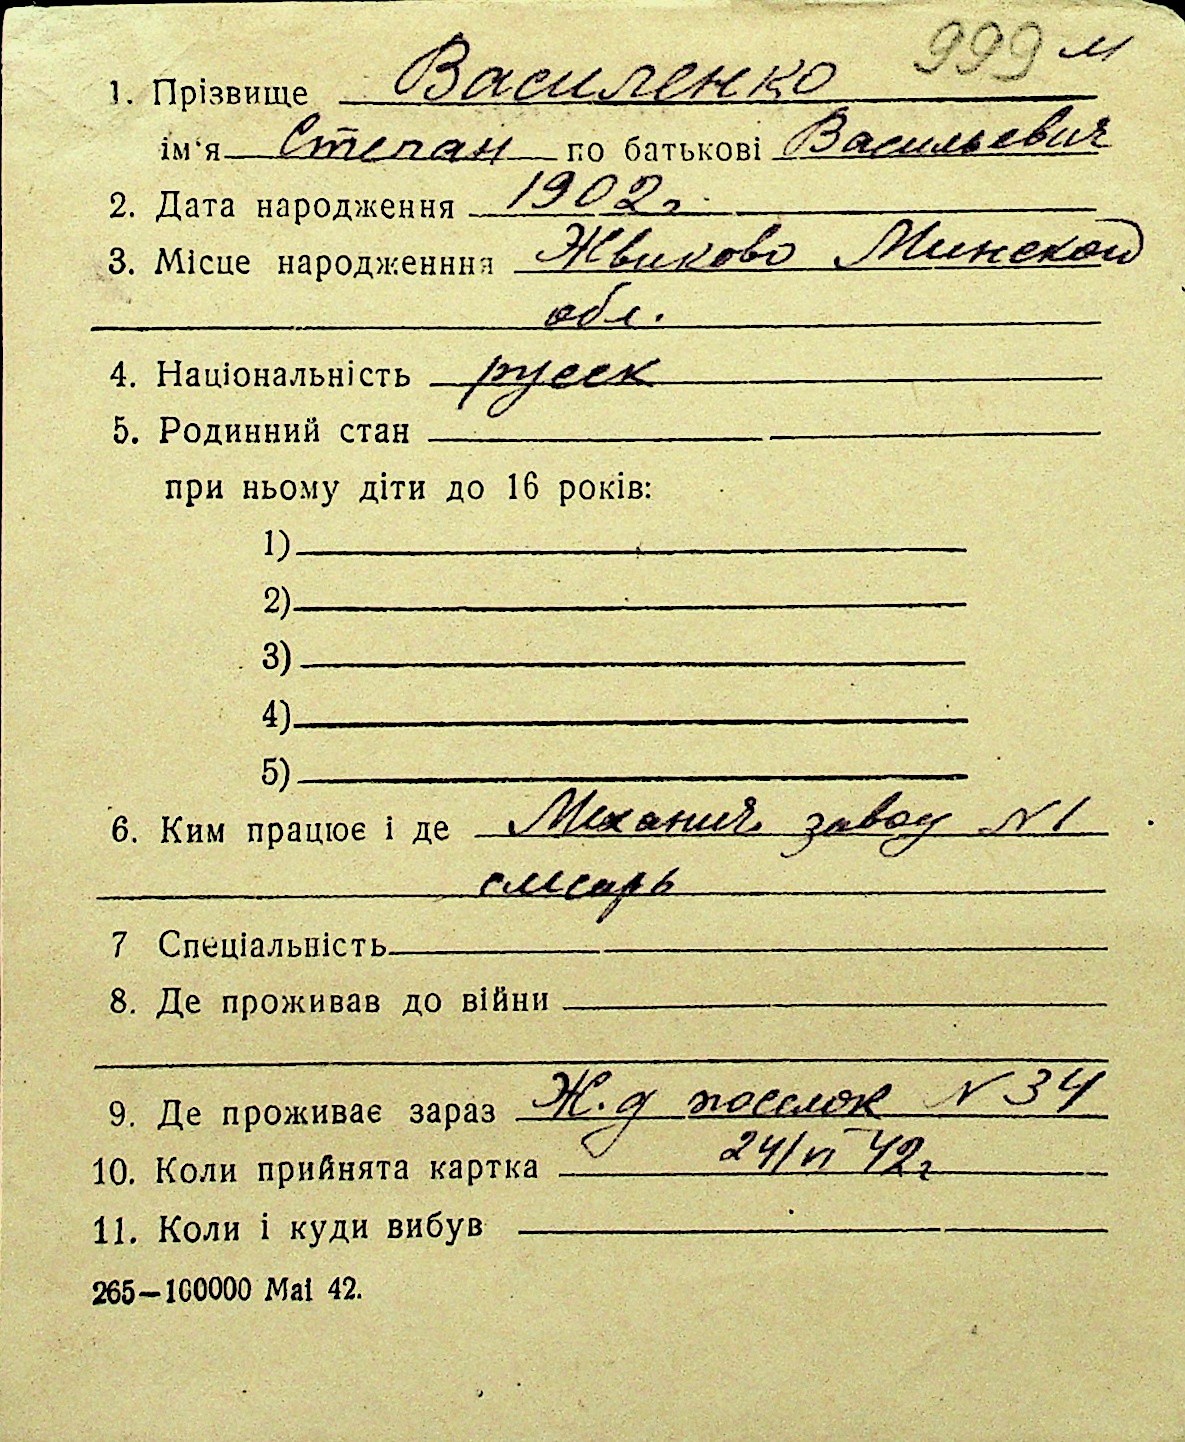 999 м
1. Прізвище Василенко
ім'я Степан по батькові Васильевич
2. Дата народження 1902 г.
3. Місце народженння Жвиково Минской
обл.
4. Національність русск
5. Родинний стан
при ньому діти до 16 років:
1)
2)
3)
4)
5)
6. Ким працює і де Механич. завод N1
слесарь
7 Спеціальність
8. Де проживав до війни
9. Де проживає зараз Ж.д поселок N 34
10. Коли прийнята картка 24/VI 42 г
11. Коли і куди вибув
265—100000 Mai 42.